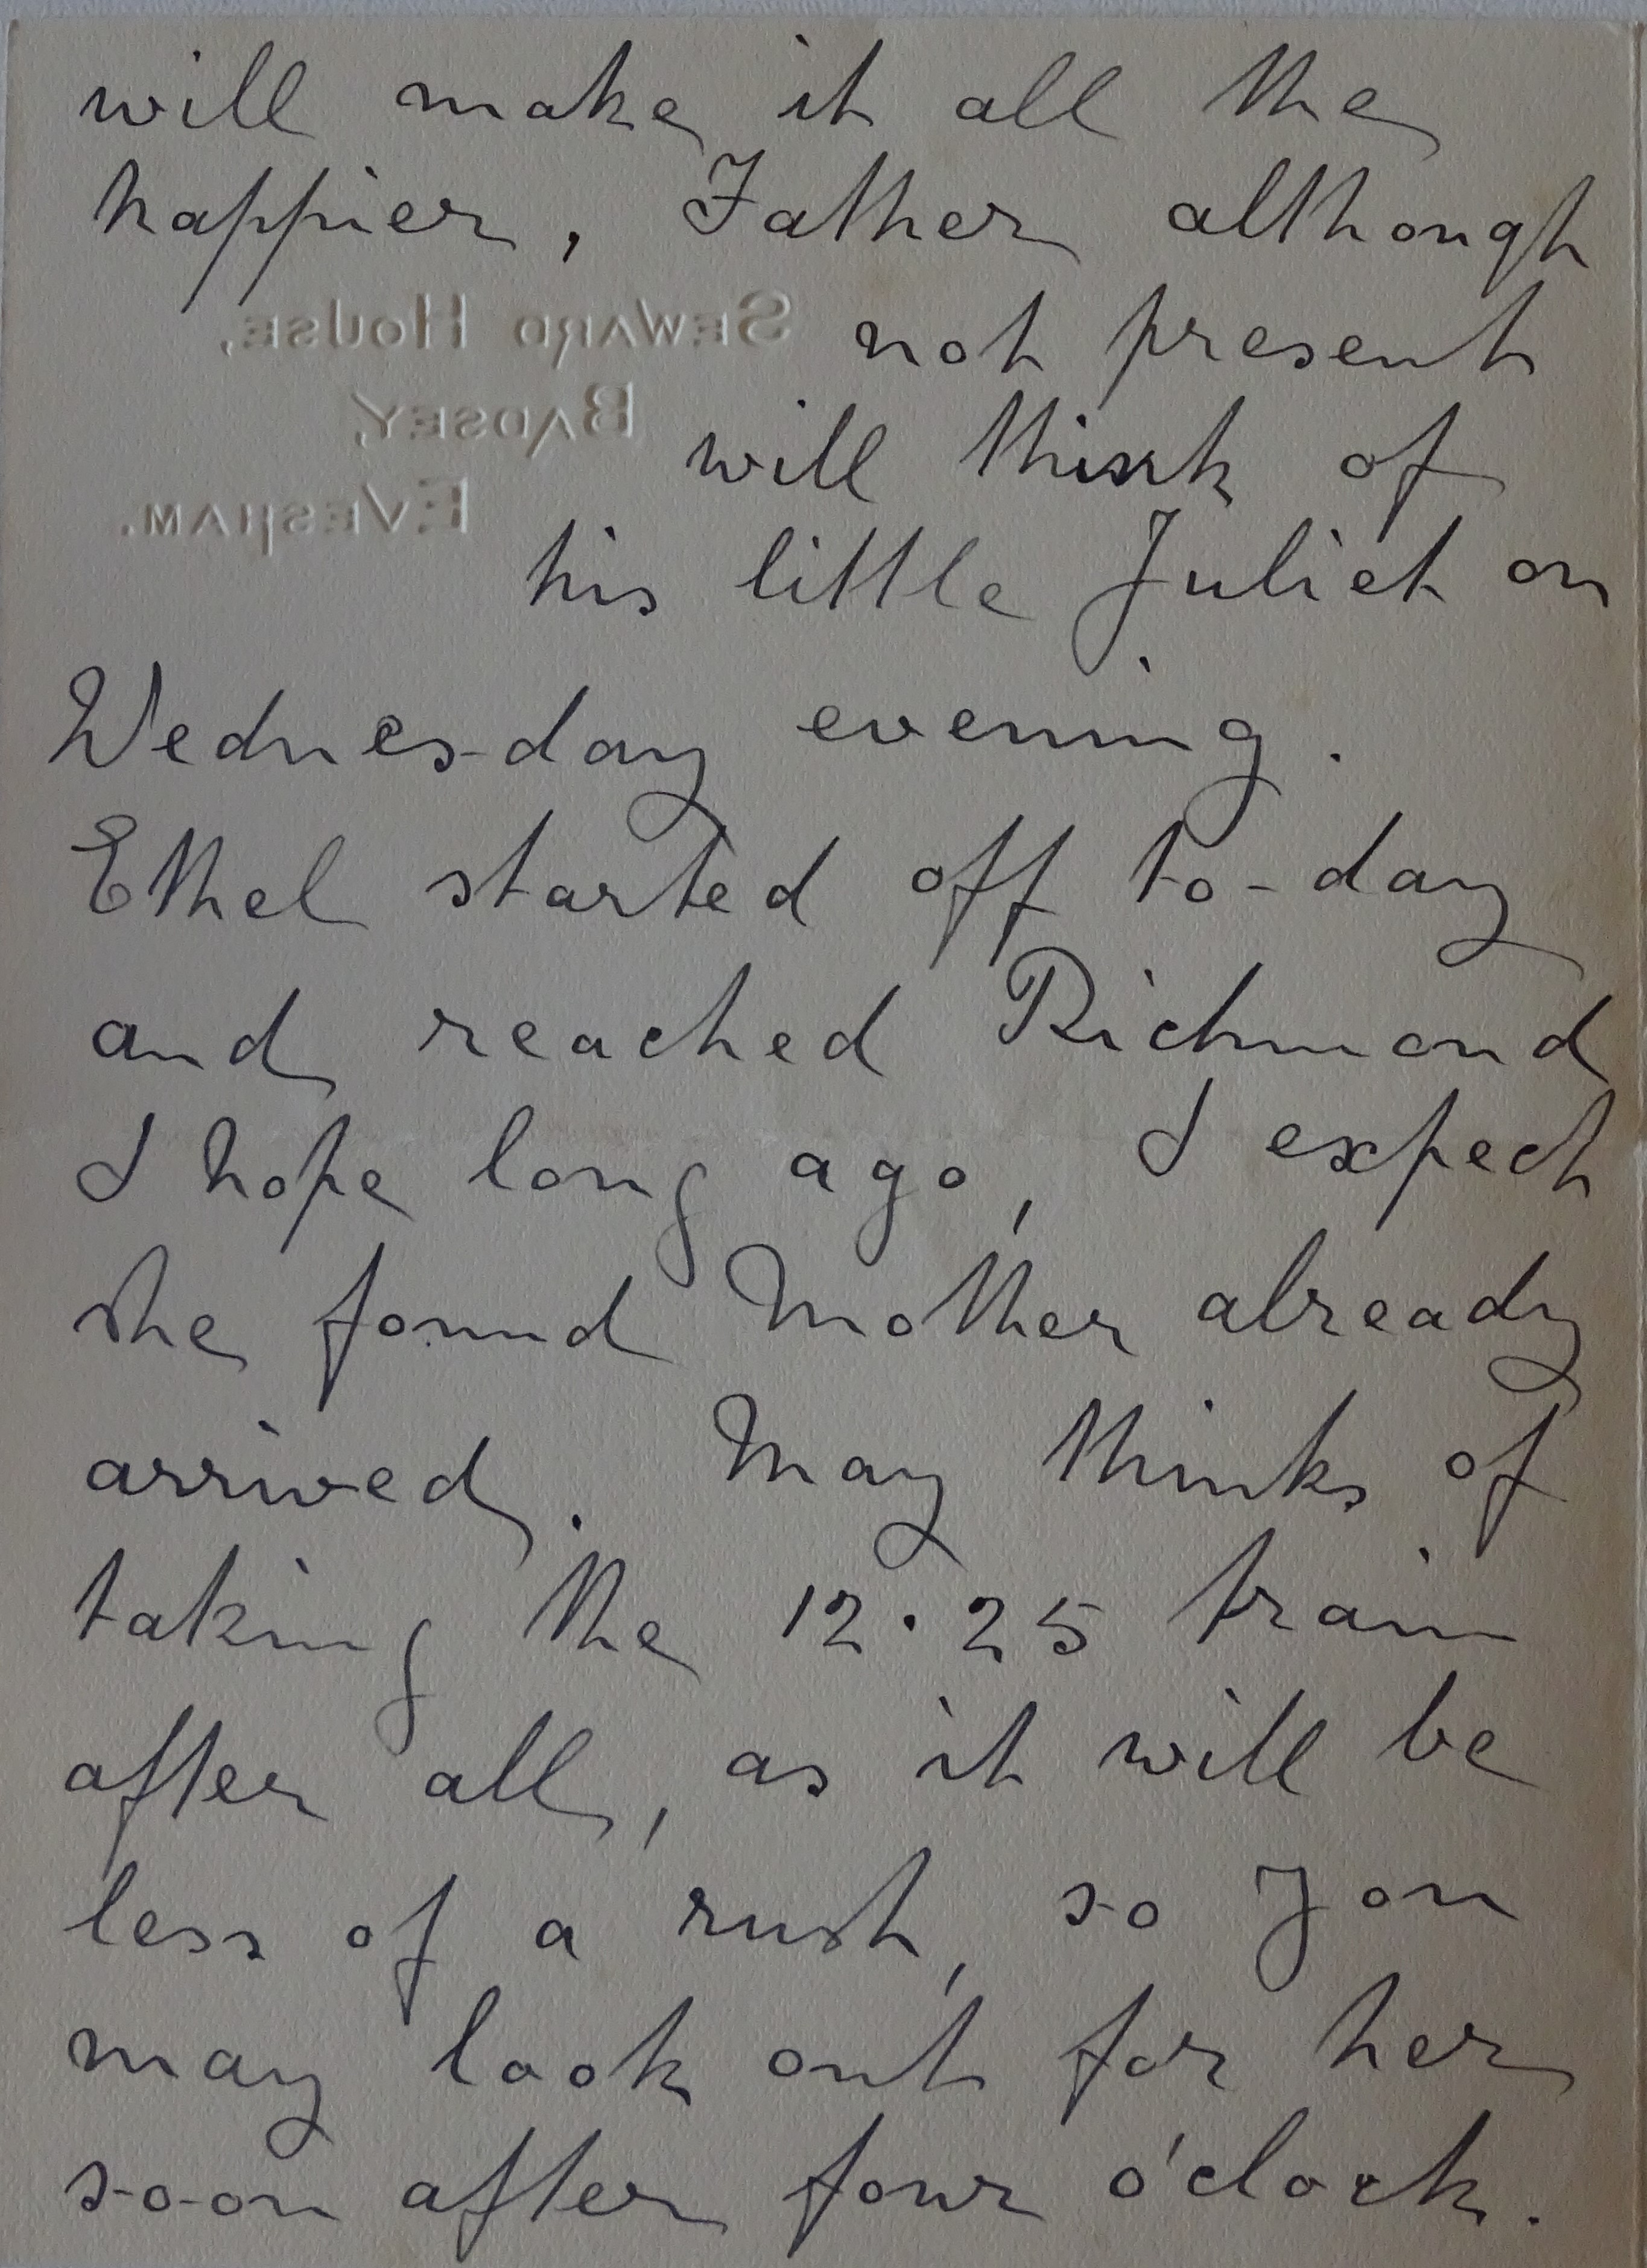 will make it all the
happier, Father although
SEWARD HOUSE,
not present
BADSEY,
will think of
EVESHAM.
his little Juliet on
Wednesday evening.
Ethel started off to-day
and reached Richmond
I hope long ago, I expect
she found Mother already
arrived. May thinks of
taking the 12.25 train
after all, as it will be
less of a rush, so you
may look out for her
soon after four o'clock.